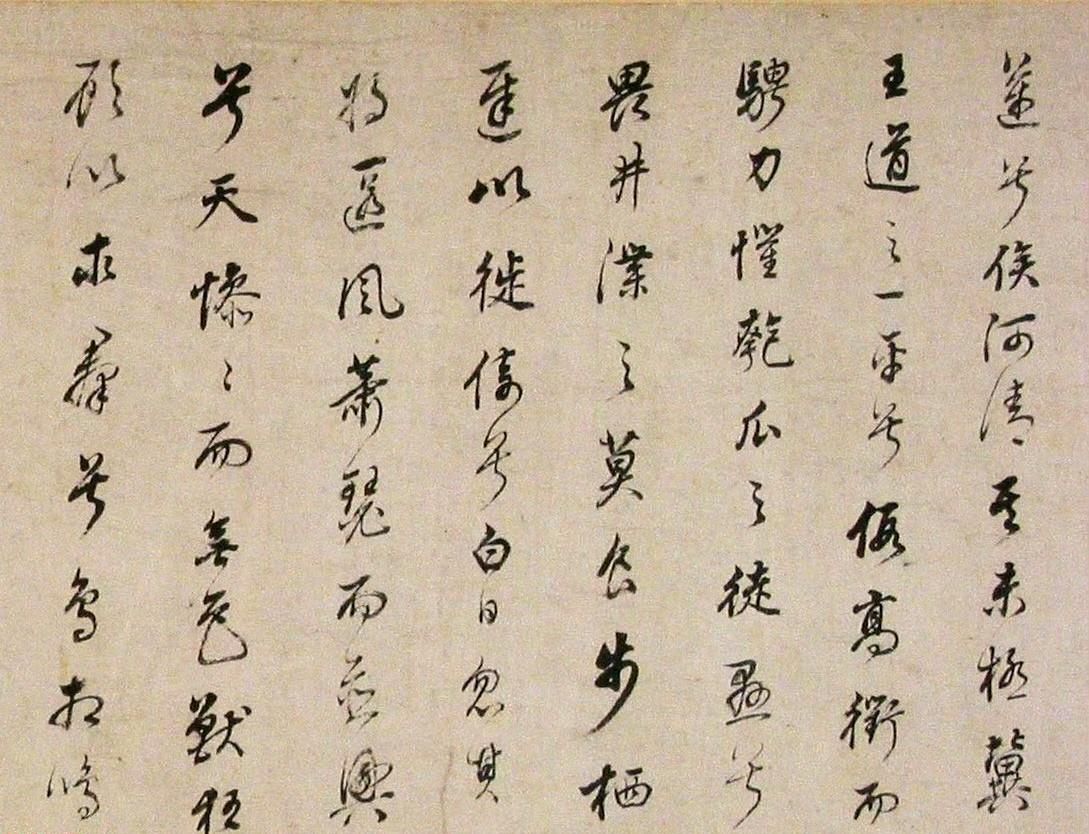 邁兮俟河清其未極冀
王道之一平兮假高衢而
騁力懼匏瓜之徒懸兮
畏井渫之莫食步栖
遲以徙倚兮白日忽其
將匿風蕭瑟而並興
兮天慘〻而無色獸狂
顧以求羣兮鳥相鳴